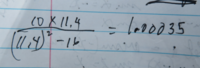 10 × 11.4
(11.4)² - 16 = 1.00035